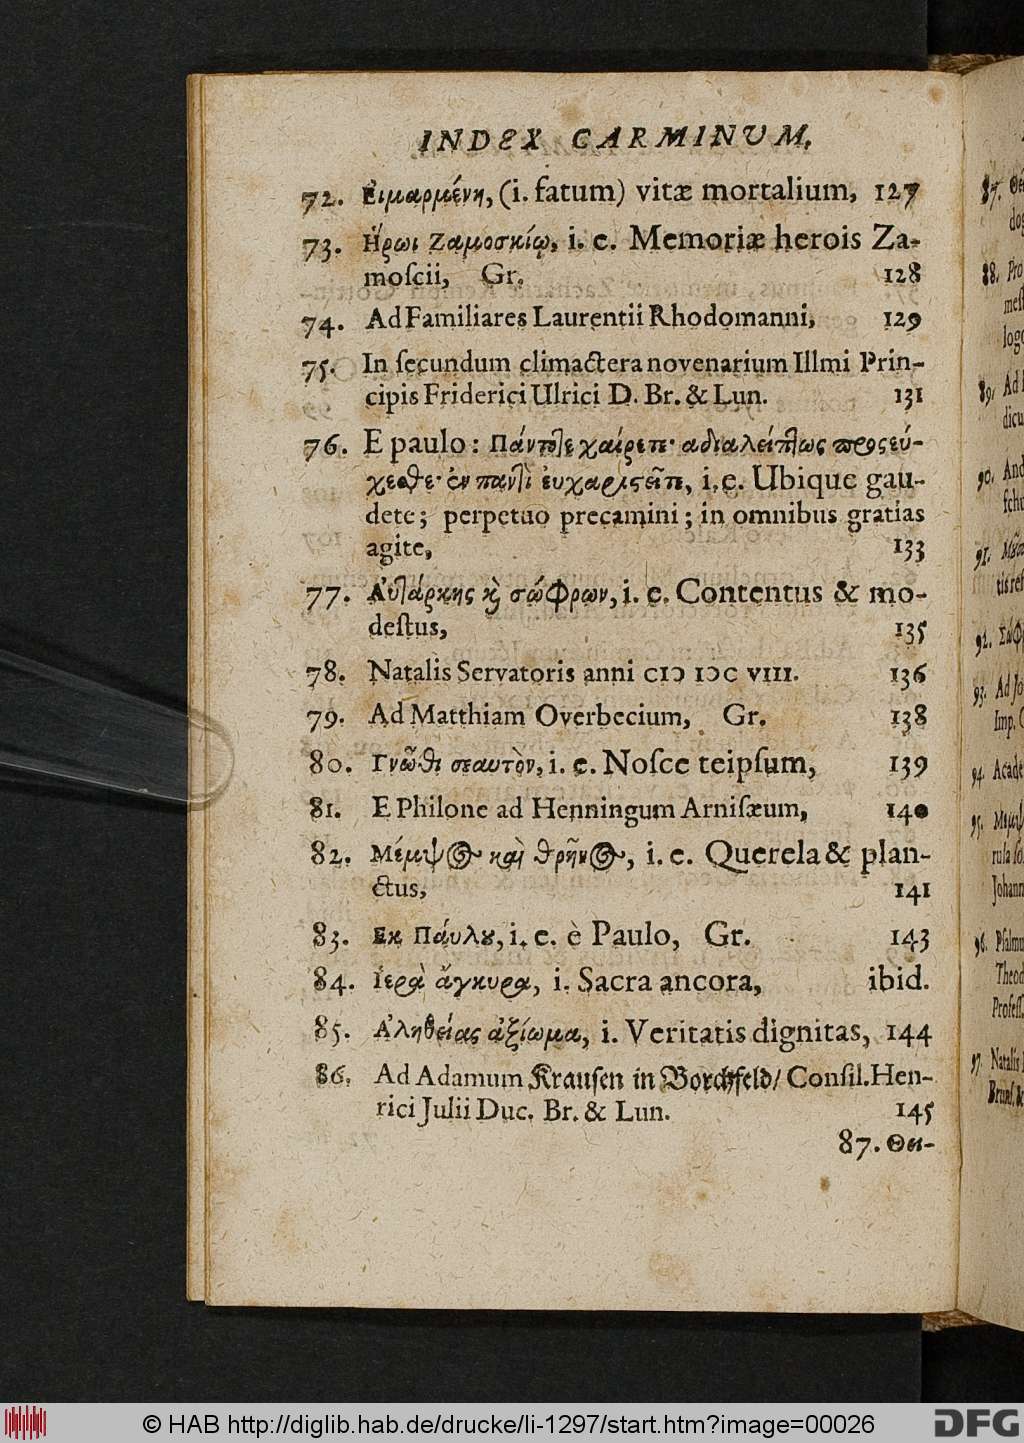 INDEX CARMINUM.
72. Εἱμαρμένη, (i. fatum) vitæ mortalium, 127
73. Ηρωι Ζαμοσκίῳ, i. e. Memoriæ herois Za-
moſcii, Gr. 128
74. Ad Familiares Laurentii Rhodomanni, 129
75. In ſecundum climactera novenarium Illmi Prin-
cipis Friderici Ulrici D. Br. & Lun. 131
76. E paulo: Πάντοτε χαίρετε· αδιαλείπτως προςεύ-
χεσθε· ἐν παντὶ ἐυχαριςεῖτε, i. e. Ubique gau-
dete; perpetuo precamini; in omnibus gratias
agite, 133
77. Αὐτάρκης κὶ σώφρων, i. e. Contentus & mo-
deſtus, 135
78. Natalis Servatoris anni CIↃ IↃC VIII. 136
79. Ad Matthiam Overbecium, Gr. 138
80. Γνῶθι σεαυτὸν, i. e. Noſce teipſum, 139
81. E Philone ad Henningum Arniſæum, 140
82. Μέμψος καὶ θρῆνος, i. e. Querela & plan-
ctus, 141
83. Εκ Πάυλου, i. e. è Paulo, Gr. 143
84. Ιερὰ ἄγκυρα, i. Sacra ancora, ibid.
85. Αληθείας ἀξίωμα, i. Veritatis dignitas, 144
86. Ad Adamum Krauſen in Borchfeld/ Conſil. Hen-
rici Julii Duc. Br. & Lun. 145
87. Θει-
87.
88. Pro
89. Ad
90. And
91.
92.
93. Ad Jo
Imp.
94. Acade
95.
Johann
96. Pſalmu
Theod
Profeſſ.
97. Natalis
© HAB http://diglib.hab.de/drucke/li-1297/start.htm?image=00026
DFG